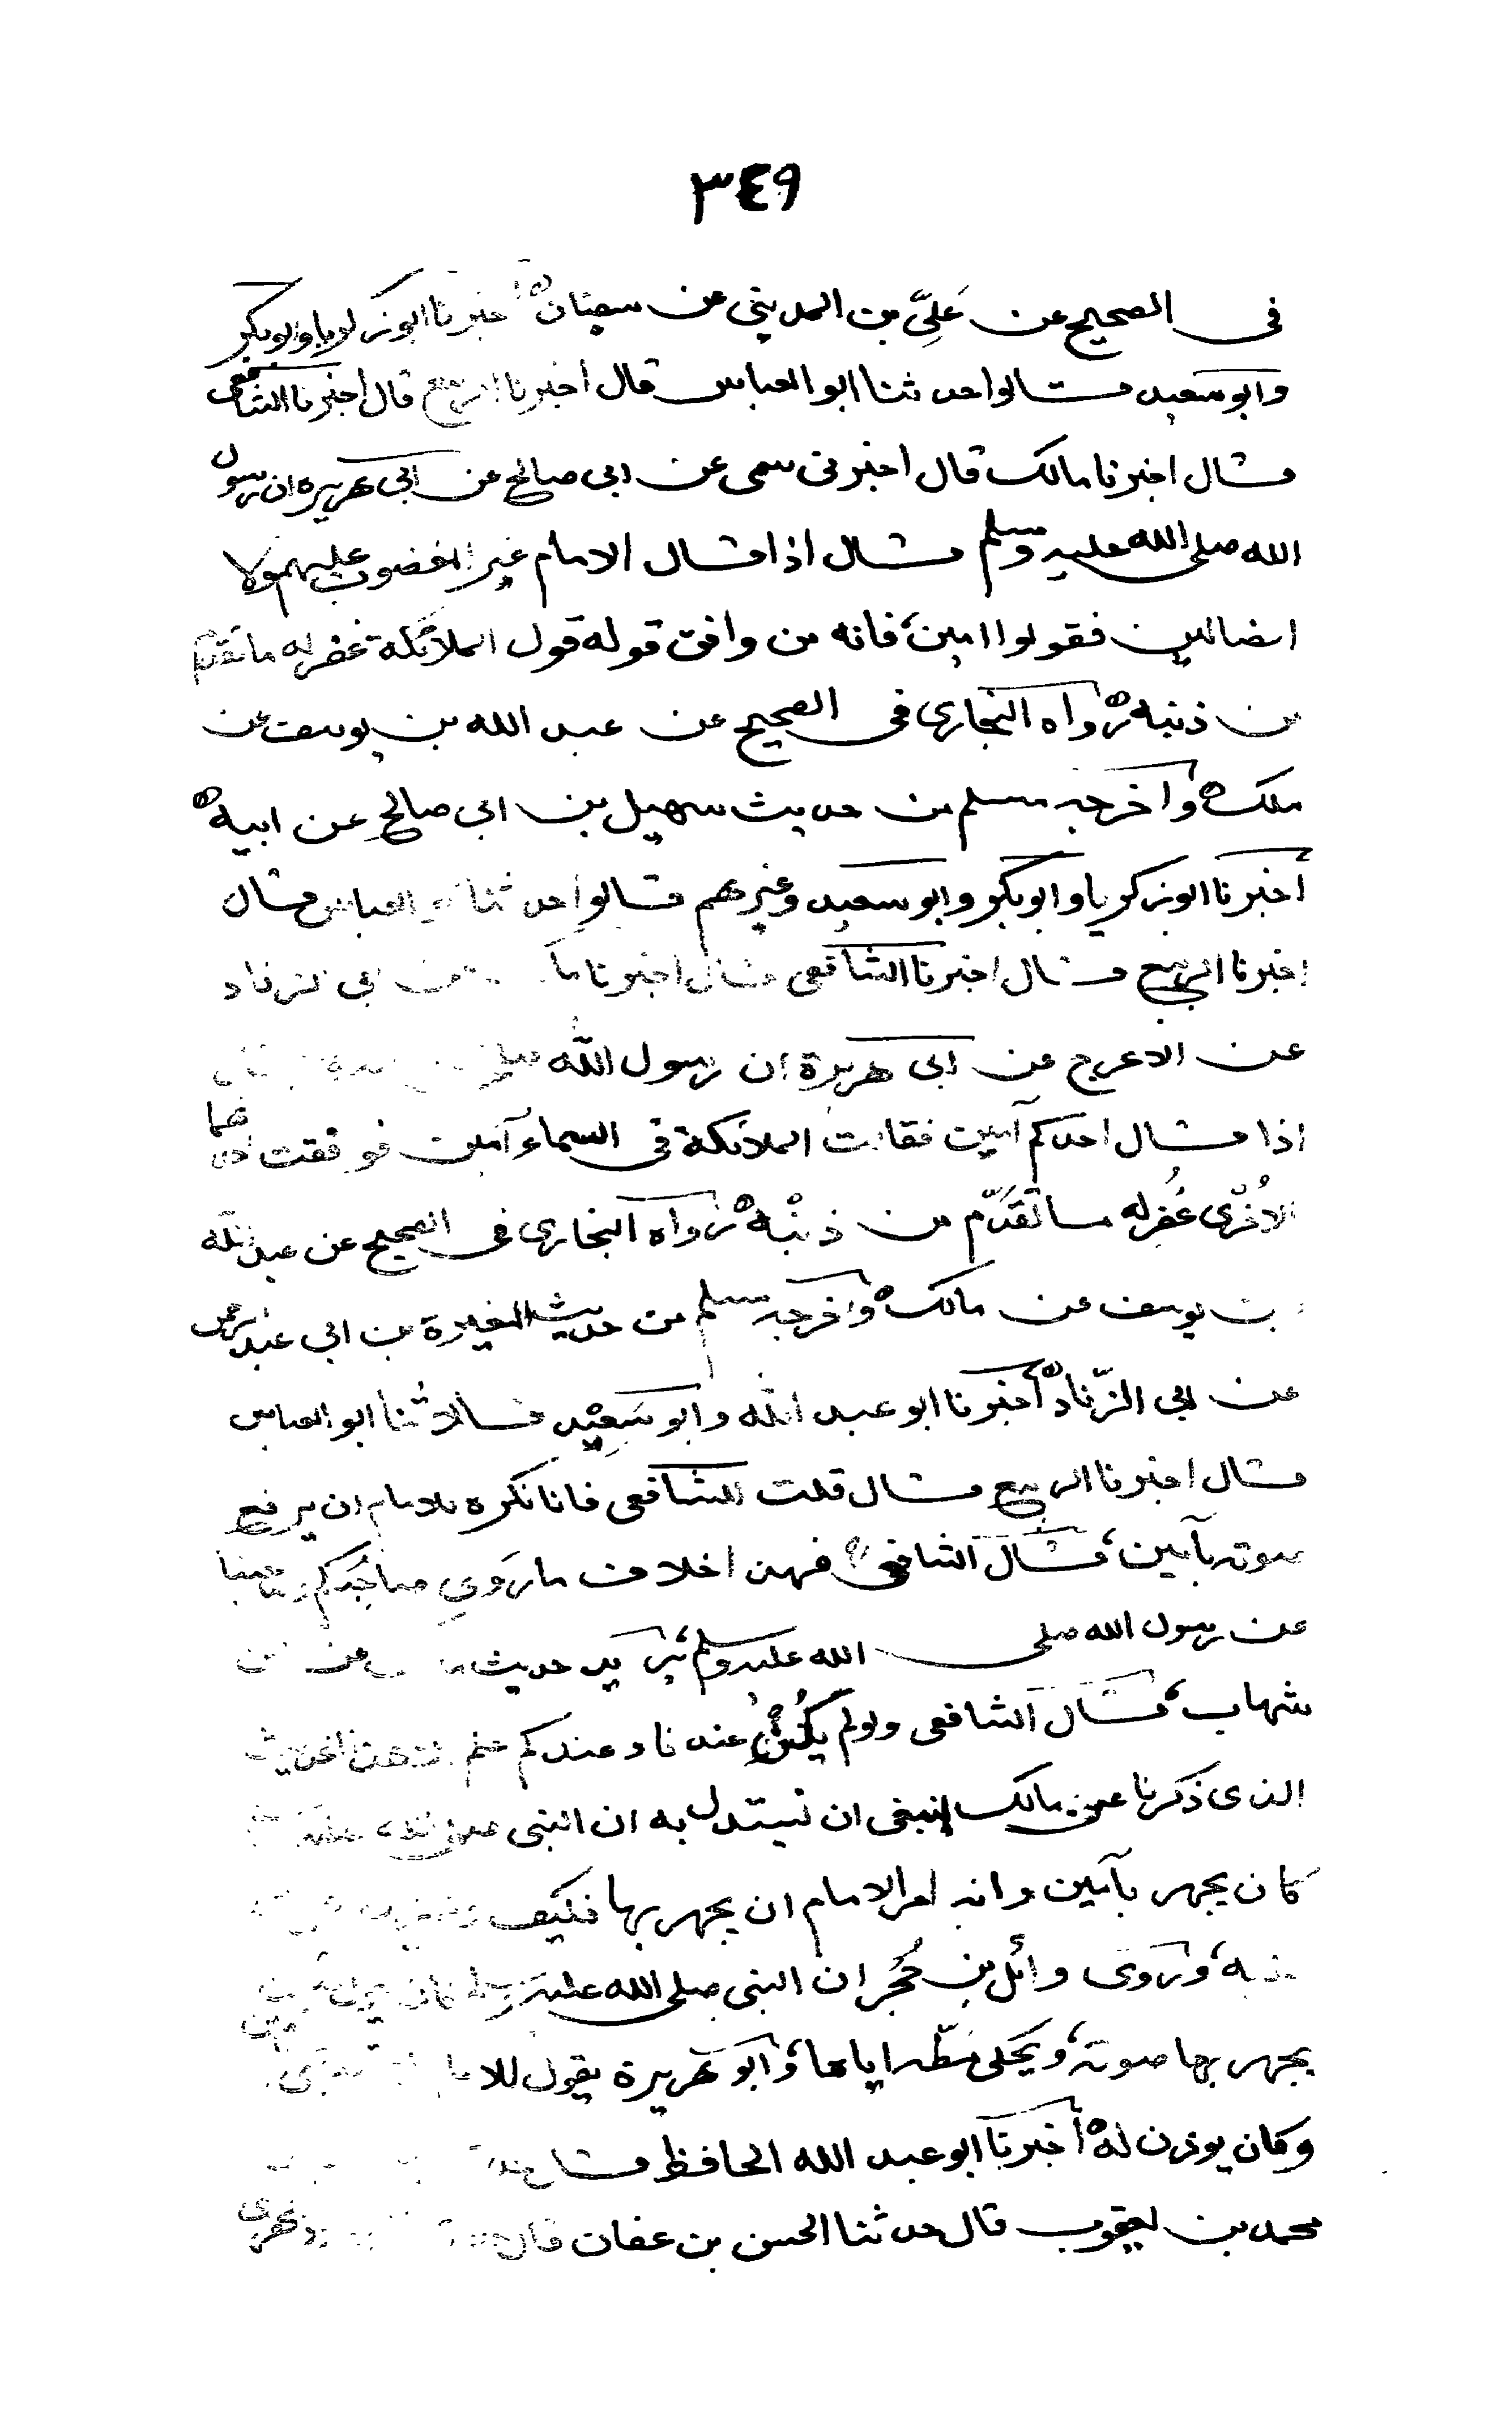 ٣٤٩
في الصحيح عن عَليّ بن المديني عن سفيان ه اخبرنا ابو زكريا وابو بكر
وابو سعيد قالوا حدثنا ابو العباس قال اخبرنا الربيع قال اخبرنا الشافعي
قال اخبرنا مالك قال اخبرني سمي عن ابي صالح عن ابي هريره ان رسول
الله صلى الله عليه وسلم قال اذا قال الامام غير المغضوب عليهم ولا
الضالين فقولوا امين، فانه من وافق قوله قول الملائكة غفر له ما تقدم
من ذنبه ه رواه البخاري في الصحيح عن عبد الله بن يوسف عن
ملك ه واخرجه مسلم من حديث سهيل بن ابي صالح عن ابيه ه
اخبرنا ابو زكريا وابو بكر وابو سعيد وغيرهم قالوا حدثنا ابو العباس قال
اخبرنا الربيع قال اخبرنا الشافعي قال اخبرنا عن ابي الزناد
عن الاعرج عن ابي هريرة ان رسول الله صلى
اذا قال احدكم آمين فقالت الملائكة في السماء آمين فوافقت احداهما
الاُخرى غُفر له ما تقدّم من ذنبه ه رواه البخاري في الصحيح عن عبد الله
بن يوسف عن مالك ه واخرجه مسلم من حديث المغيرة بن ابي عبد الرحمن
عن ابي الزّناد ه اخبرنا ابو عبد الله وابو سَعِيْد قالا ثنا ابو العباس
قال اخبرنا الربيع قال قلت للشافعي فانا نكره للامام ان يرفع
صوته بآمين، قال الشافعي ه فهذا خلاف ما رَوَى صاحبُكم
عن رسول الله صلى الله عليه وسلم، يُريد حديث عن ابن
شهاب، قال الشافعي ولو لم يكُن عندنا وعندكم علم هذا الحديث
الذي ذكرنا عن مالك انبغى ان نستدل به ان النبي صلى الله عليه
كان يجهر بآمين وانه امر الامام ان يجهر بها فكيف
به، ورَوَى وائل بن حُجْر ان النبي صلى الله عليه وسلم كان يقول آمين
يجهر بها صوته، ويحكي مَطّه اياها، وابو هريرة يقول للامام
وكان يوذن له ه اخبرنا ابو عبد الله الحافظ قال
محمد بن يعقوب قال حدثنا الحسن بن عفان قال